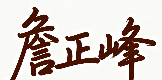 詹正峰